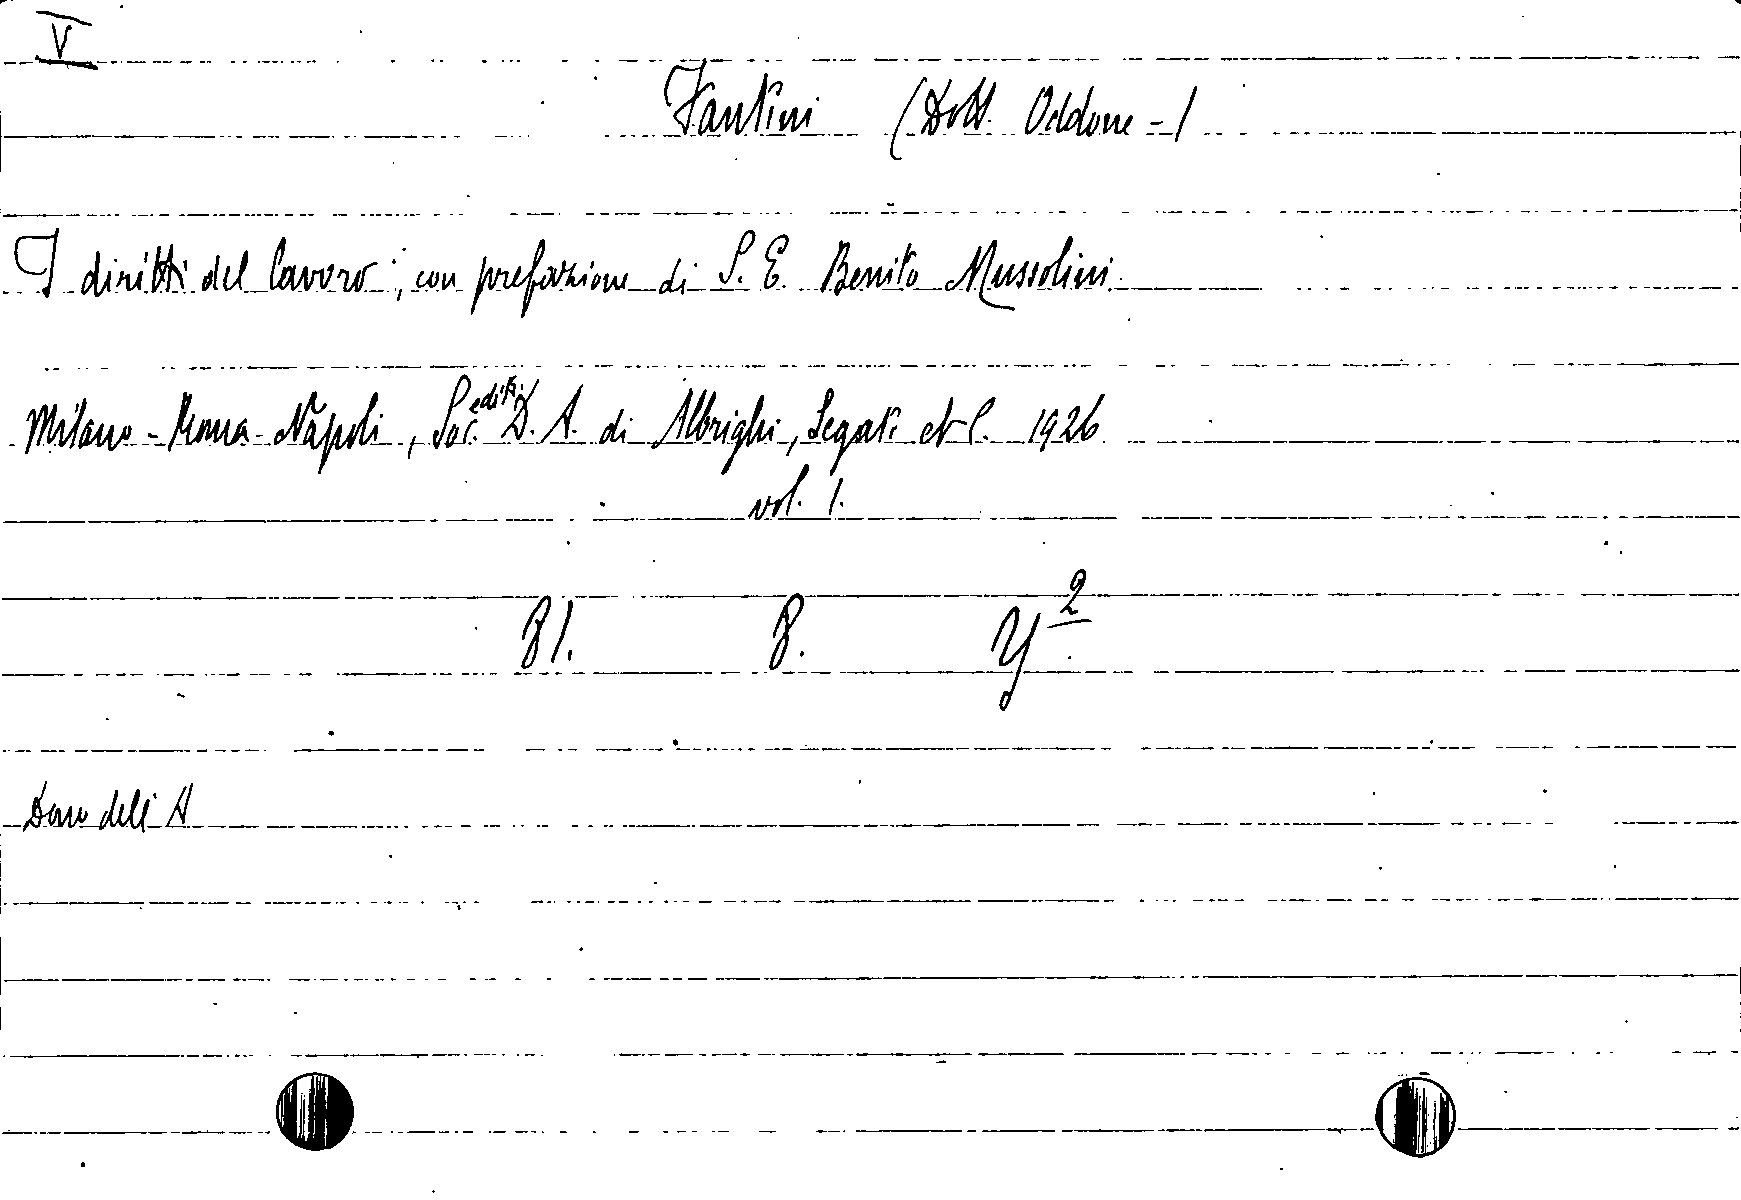 V
Fantini (Dott. Oddone -)
I diritti del lavoro; con prefazione di S. E. Benito Mussolini.
Milano - Roma - Napoli, Soc. editr. D. A. di Albrighi, Segati et C. 1926
vol. 1.
81. 8. Y²
Dono dell'A